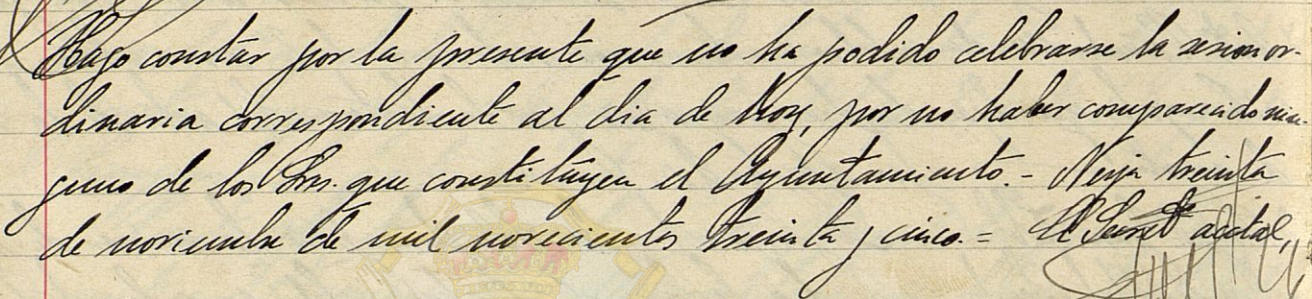 Hago constar por la presente que no ha podido celebrarse la sesion or-
dinaria correspondiente al dia de hoy, por no haber comparecido nin-
guno de los Sres. que constituyen el Ayuntamiento.- Nerja treinta
de noviembre de mil novecientos treinta y cinco.= El Secret.º acctal,